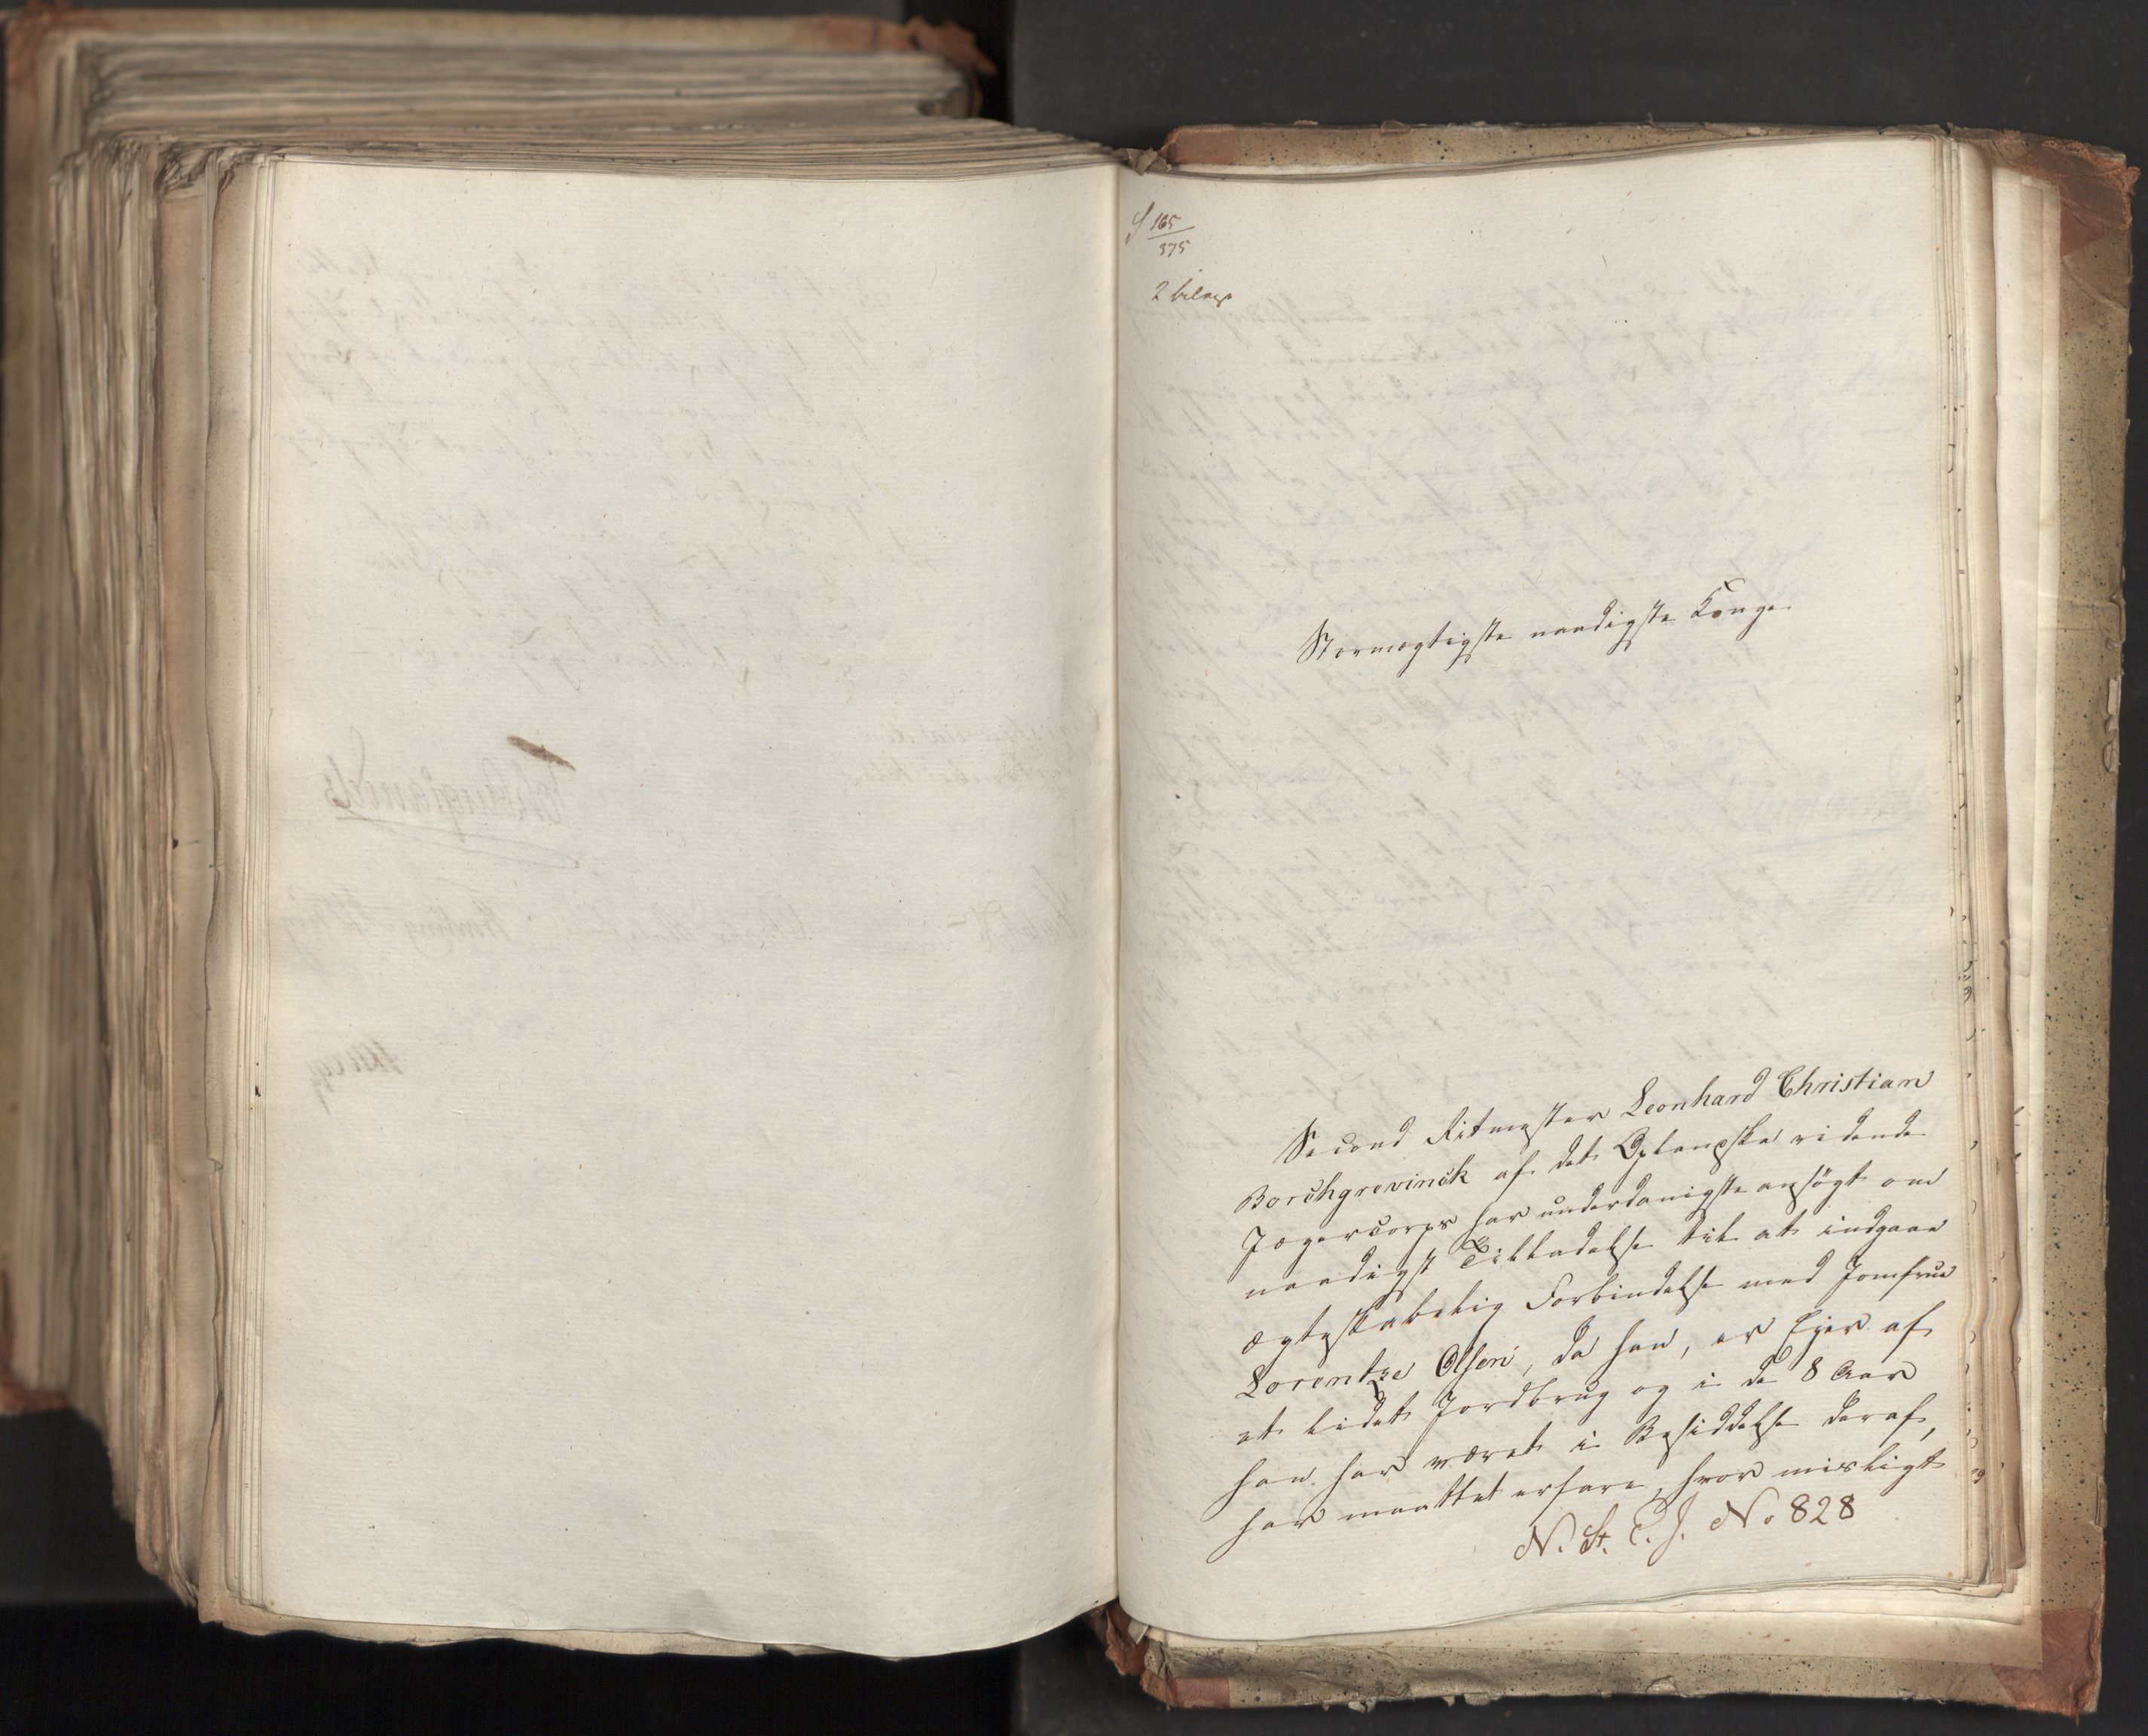 165
375
2 bilage
Stormægtigste naadigste Konge
Second Ritmester Leonhard Christian
Borchgrevinck af det Oplandske ridende
Jægercorps har underdanigst ansøgt om
naadigst Tilladelse til at indgaae
ægteskabelig Forbindelse med Jomfrue
Lorentze Olsen, da han, er Ejer af
et lidet Jordbrug og i de 8 Aar
han har været i Besiddelse deraf,
har maattet erfare, hvor misligt
N. St. C. J. No 828